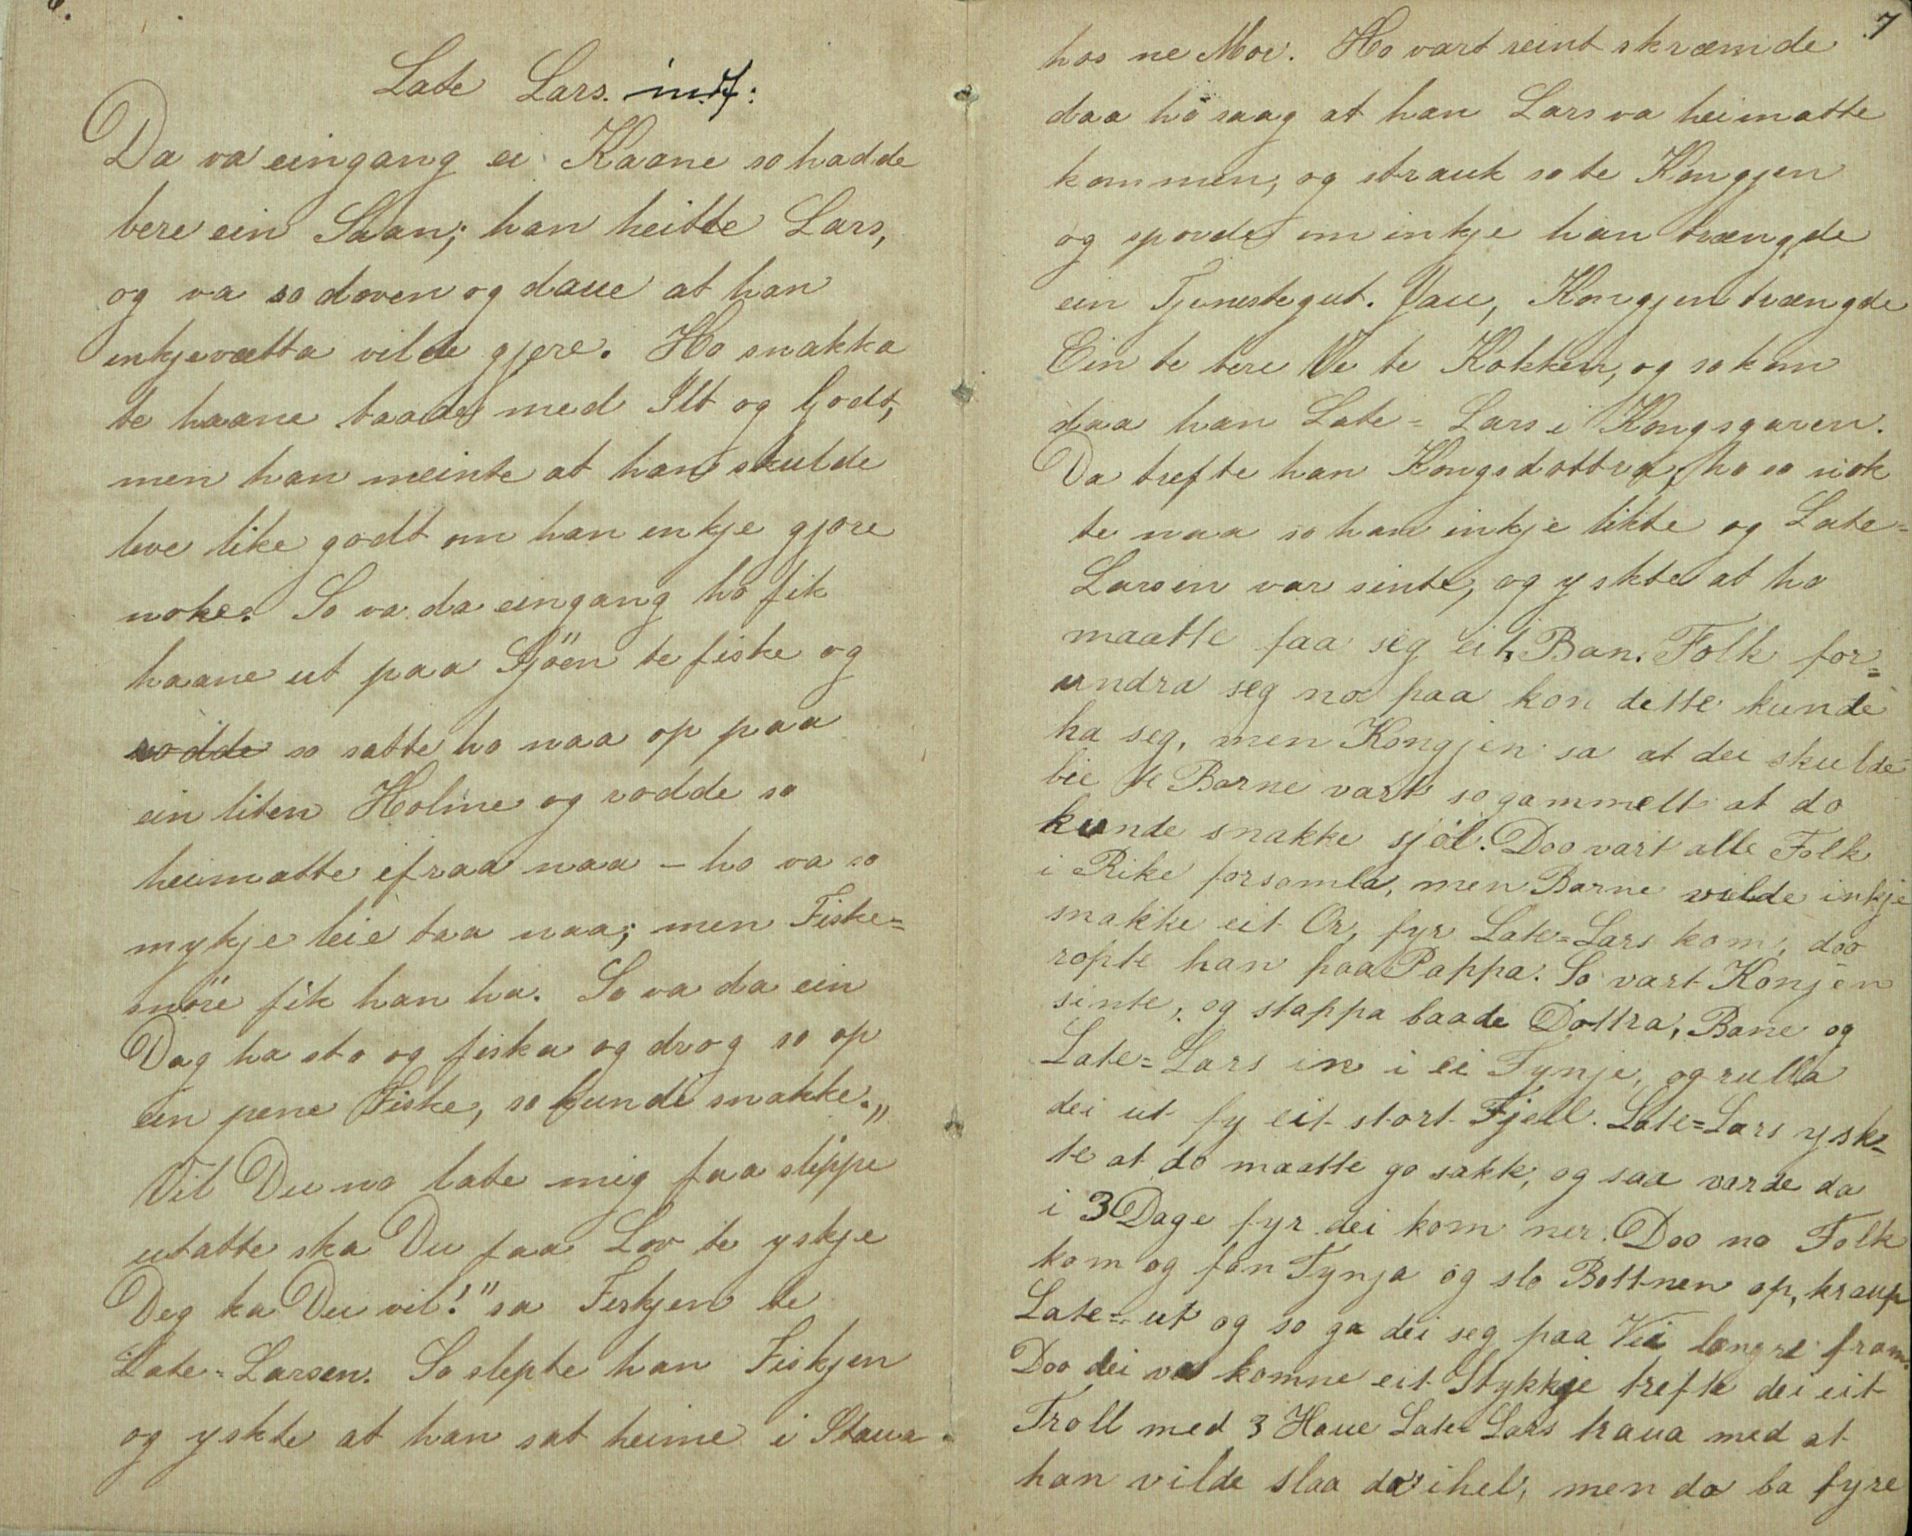 6.
Late Lars.
Da va eingang ei Kaane so hadde
bere ein Saan; han heitte Lars,
og va so doven og daue at han
inkjevætta vilde gjere. Ho snakka
te haane baade med Ilt og Godt,
men han meinte at han skulde
leve like godt om han inkje gjore
noke. So va da eingang ho fik
haane ut paa Sjöen te fiske og
rodde so satte ho naa op paa
ein liten Holme og rodde so
heimatte ifraa naa – ho va so
mykje leie taa naa; men Fiske=
snöre fik han ha. So va da ein
Dag ha sto og fiska og drog so op
ein pene Fiske, so kunde snakke. "
Vil Du no late mig faa slippe
utatte ska Du faa Lov te yskje
Deg ka Du vil!" sa Fiskjen te
Late-Larsen. So slepte han Fiskjen
og yskte at han sat heime i Staua
7
hos ne Mor. Ho vart reint skræmde
daa ho saag at han Lars va heimatte
kommen, og strauk so te Kongjen
og sporde om inkje han trængde
ein Tjenestegut. Jau, Kongjen trængde
Ein te bere Ve te Kokken, og so kom
daa han Late=Lars i Kongsgaren.
Da trefte han Kongsdottra, ho so nok
te naa so han inkje likte og Late=
Larsin var sinte, og yskte at ho
maatte faa seg eit Ban. Folk for=
undra seg no paa kon dette kunde
ha seg, men Kongjen sa at dei skulde
bie te Barne vart so gammelt at do
kunde snakke sjöl. Doo vart alle Folk
i Rike forsamla, men Barne vilde inkje
snakke eit Or, fyr Late=Lars kom, doo
ropte han paa Pappa. So vart Konjen
sinte, og stappa baade Dottra, Bane og
Late=Lars in i ei Tynje, og rulla
dei ut fy eit stort Fjell. Late=Lars ysk=
te at do maatte go sakk, og saa varde da
i 3 Dage fyr dei kom ner. Doo no Folk
kom og fan Tynja og slo Bottnen op, kraup
Late= ut og so ga dei seg paa Vei længre fram.
Doo dei va komne eit Stykkje trefte dei eit
Troll med 3 Haue Late Lars traua med at
han vilde slaa da ihel, men do ba fyre